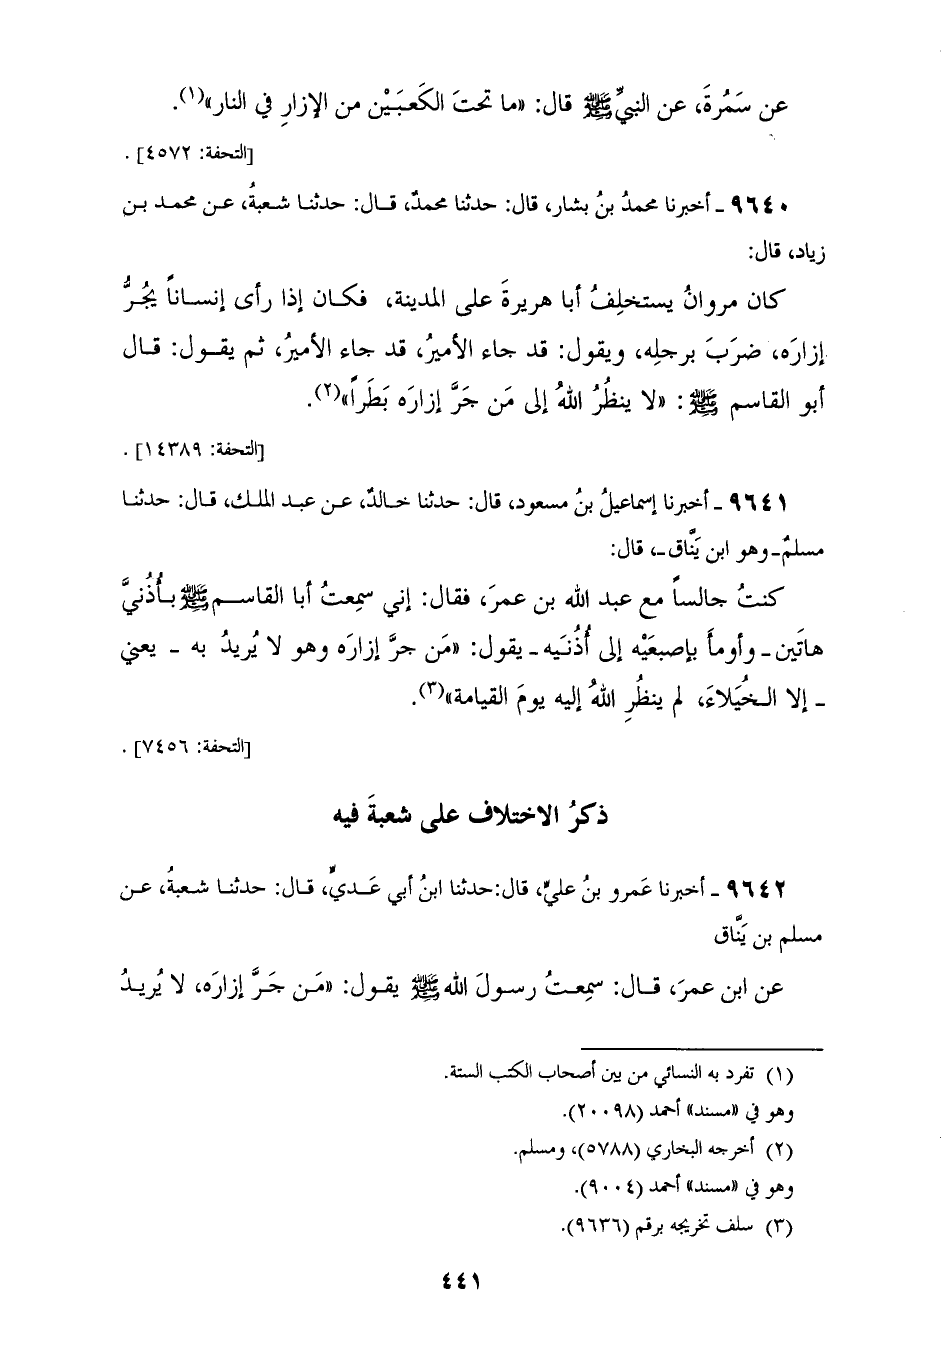 عن سَمُرةَ، عن النبيِّ ﷺ قال: «ما تحتَ الكَعبَيْن من الإزارِ في النار»(١).
[التحفة: ٤٥٧٢] .
٩٦٤٠ ـ أخبرنا محمدُ بنُ بشار، قال: حدثنا محمدٌ، قـال: حدثنـا شـعبةُ، عـن محمـد بـن
زياد، قال:
كان مروانُ يستخلِفُ أبا هريرةَ على المدينة، فكـان إذا رأى إنسـاناً يجُرُّ
إزارَه، ضرَبَ برجلِه، ويقول: قد جاء الأميرُ، قد جاء الأميرُ، ثم يقـول: قـال
أبو القاسم ﷺ: «لا ينظُرُ اللهُ إلى مَن جَرَّ إزارَه بَطَراً»(٢).
[التحفة: ١٤٣٨٩] .
٩٦٤١ ـ أخبرنا إسماعيلُ بنُ مسعود، قال: حدثنا خـالدٌ، عـن عبـد الملـك، قـال: حدثنـا
مسلمٌ ـ وهو ابن يَنَّاق ـ، قال:
كنتُ جالساً مع عبد الله بن عمرَ، فقال: إني سمِعتُ أبا القاسـم ﷺ بـأُذُنيَّ
هاتَين ـ وأومأَ بإصبعَيْه إلى أُذُنَيه ـ يقول: «مَن جرَّ إزارَه وهو لا يُريدُ به ـ يعني
ـ إلا الـخُيَلاءَ، لم ينظُرِ اللهُ إليه يومَ القيامة»(٣).
[التحفة: ٧٤٥٦] .
ذكرُ الاختلاف على شعبةَ فيه
٩٦٤٢ ـ أخبرنا عَمرو بنُ عليٍّ، قال:حدثنا ابنُ أبي عَـديٍّ، قـال: حدثنـا شـعبةُ، عـن
مسلم بن يَنَّاق
عن ابن عمرَ، قـال: سمِعـتُ رسـولَ الله ﷺ يقـول: «مَـن جَـرَّ إزارَه، لا يُريـدُ
(١) تفرد به النسائي من بين أصحاب الكتب الستة.
وهو في «مسند» أحمد (٢٠٠٩٨).
(٢) أخرجه البخاري (٥٧٨٨)، ومسلم.
وهو في «مسند» أحمد (٩٠٠٤).
(٣) سلف تخريجه برقم (٩٦٣٦).
٤٤١